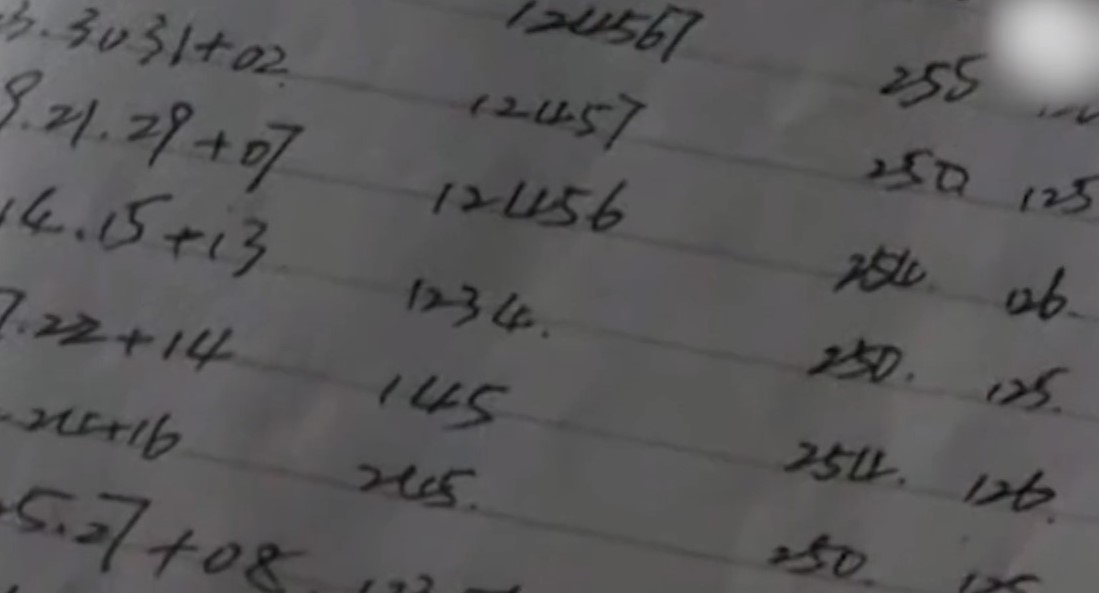 3.30 31+02 124567 255
9.21.29+07 12457 250 125
14.15+13 12456 254. 126.
7.22+14 1234. 250. 125.
24+16 145 254. 126.
5.27+08 245. 250. 125